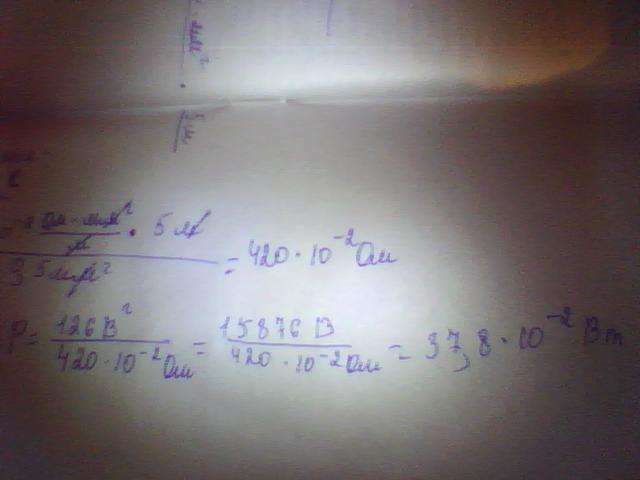 Ом · мм² / м · 5 м
= 420 · 10⁻² Ом
P = 126 В² / 420 · 10⁻² Ом = 15876 В / 420 · 10⁻² Ом = 37,8 · 10⁻² Вт